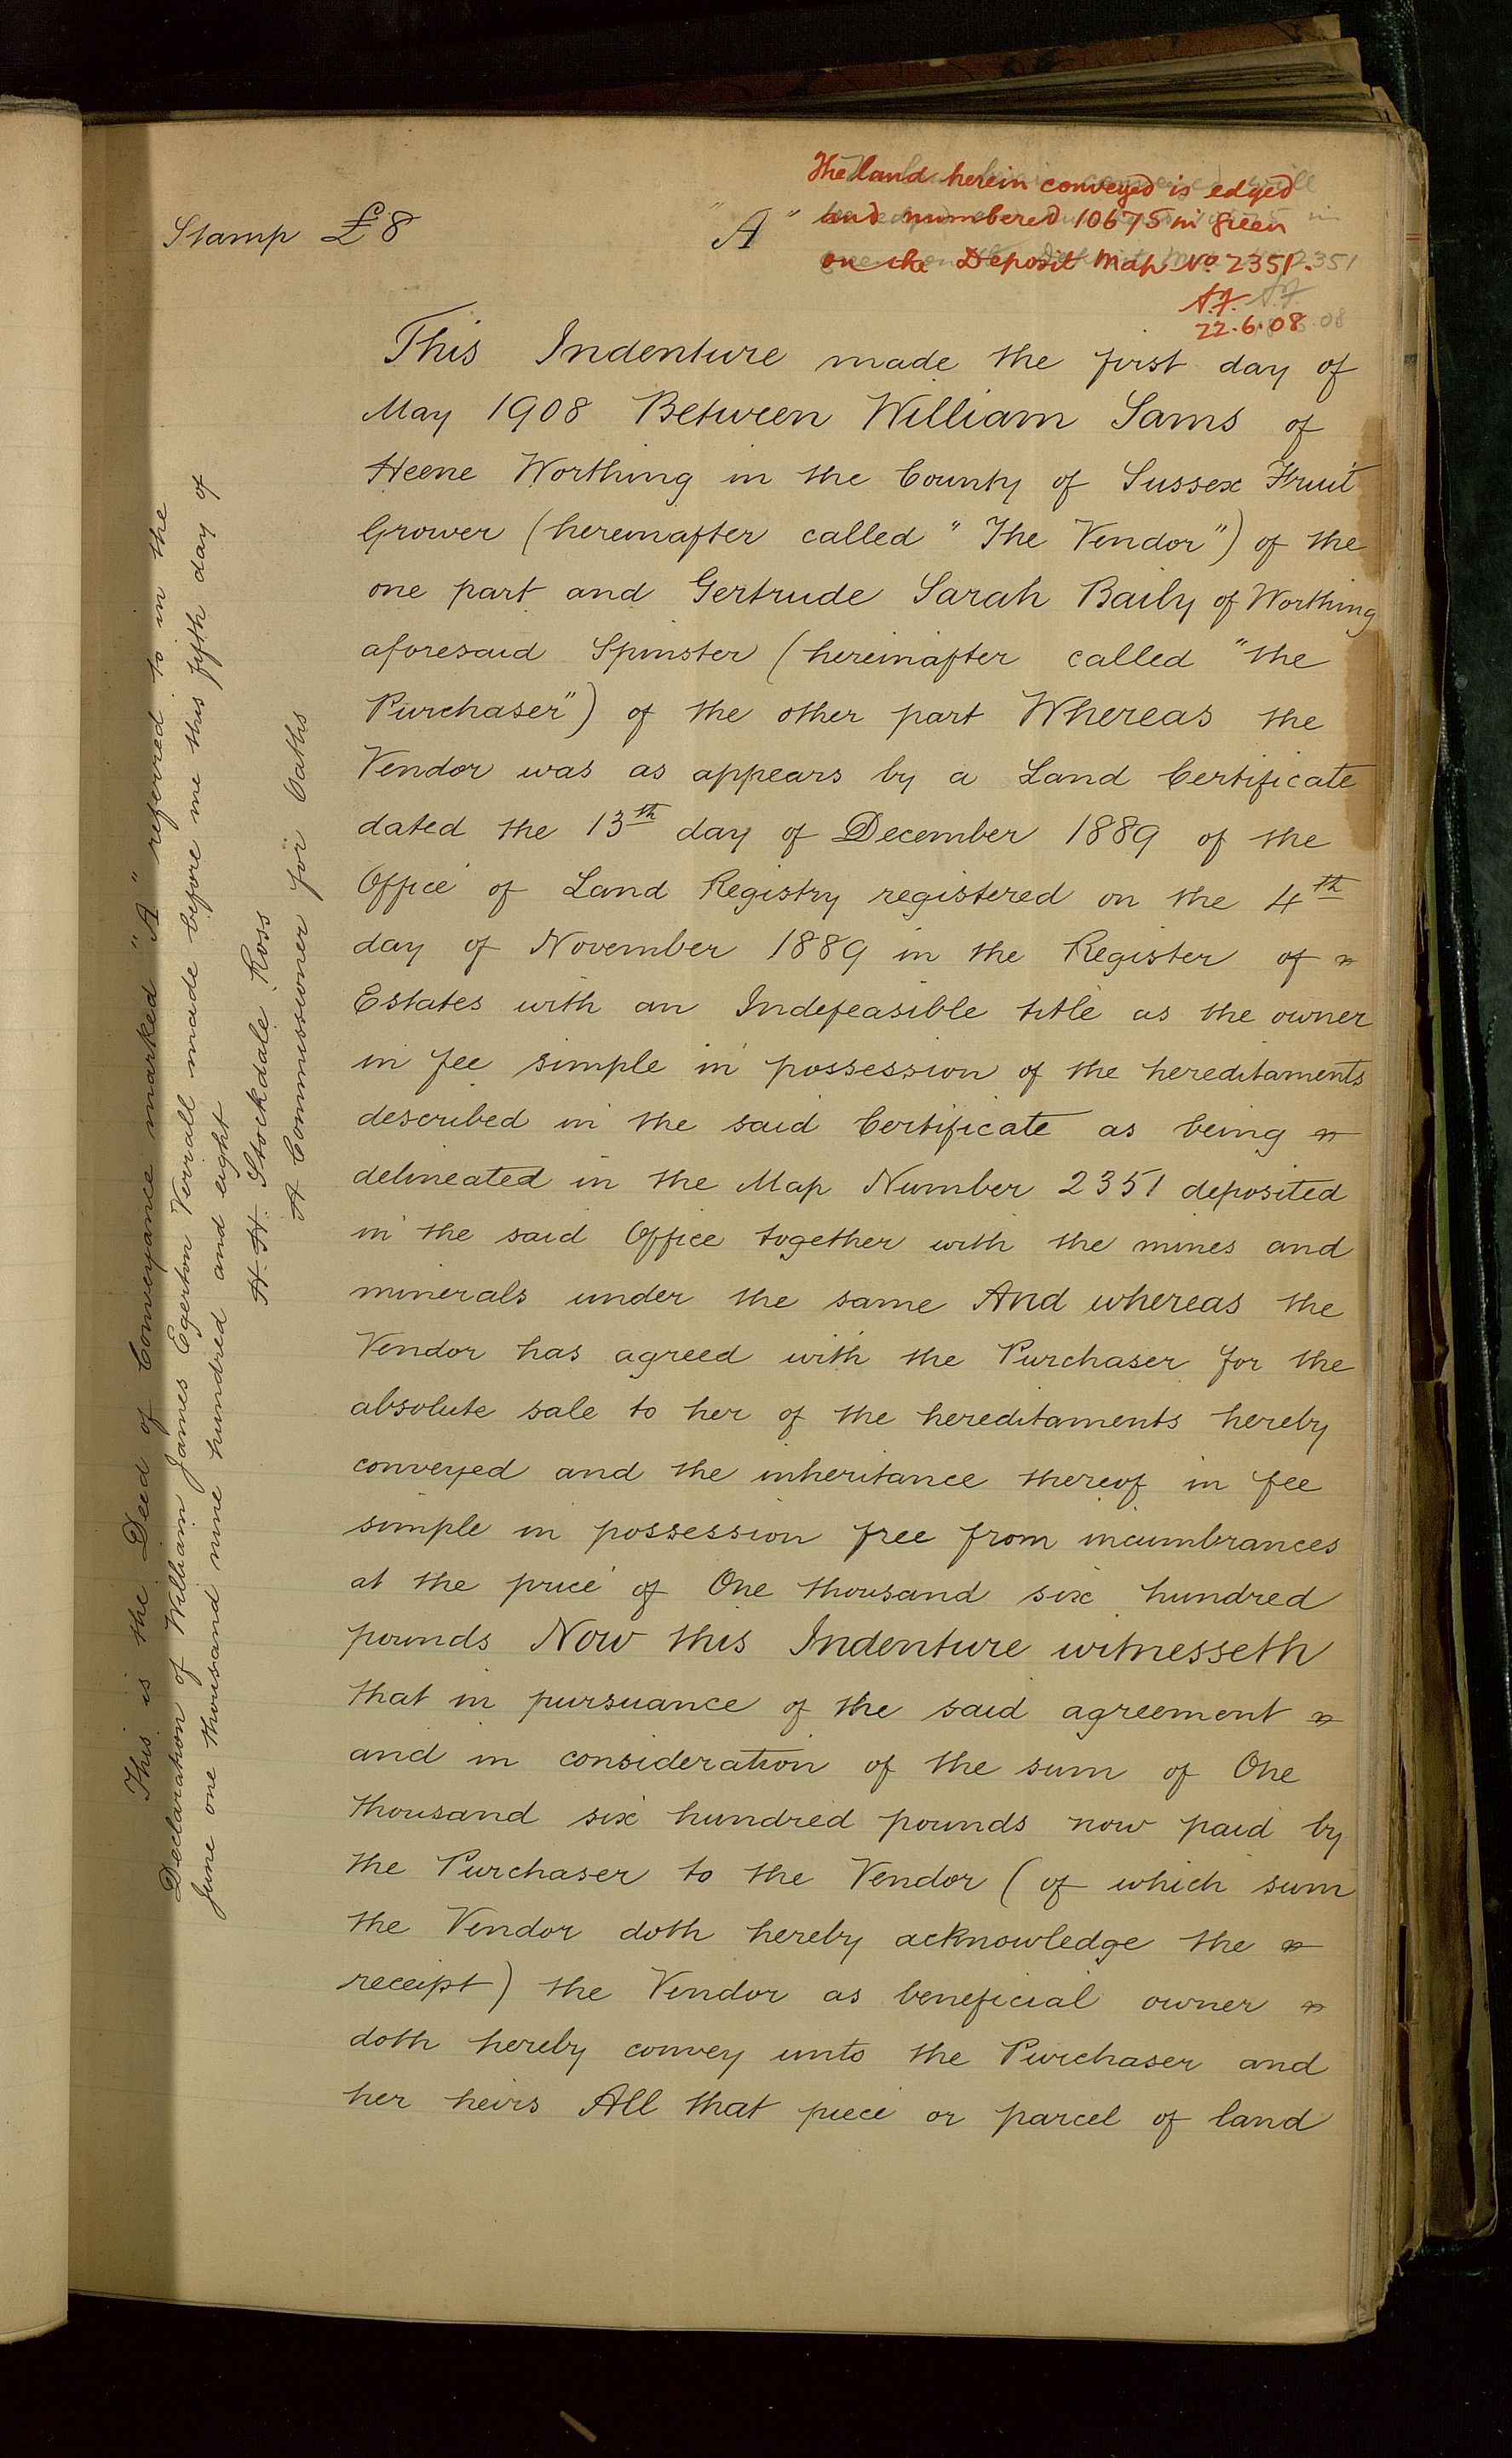 Stamp £8
"A"
The land herein conveyed is edged
and numbered 10675 in green
on the Deposit Map No 2351.
A.F.
22.6.08
This Indenture made the first day of
May 1908 Between William Sams of
Heene Worthing in the County of Sussex Fruit
Grower (hereinafter called "The Vendor") of the
one part and Gertrude Sarah Baily of Worthing
aforesaid Spinster (hereinafter called "the
Purchaser") of the other part Whereas the
Vendor was as appears by a Land Certificate
dated the 13th day of December 1889 of the
Office of Land Registry registered on the 4th
day of November 1889 in the Register of
Estates with an Indefeasible title as the owner
in fee simple in possession of the hereditaments
described in the said Certificate as being
delineated in the Map Number 2351 deposited
in the said Office together with the mines and
minerals under the same And whereas the
Vendor has agreed with the Purchaser for the
absolute sale to her of the hereditaments hereby
conveyed and the inheritance thereof in fee
simple in possession free from incumbrances
at the price of One thousand six hundred
pounds Now this Indenture witnesseth
that in pursuance of the said agreement
and in consideration of the sum of One
thousand six hundred pounds now paid by
the Purchaser to the Vendor (of which sum
the Vendor doth hereby acknowledge the
receipt) the Vendor as beneficial owner
doth hereby convey unto the Purchaser and
her heirs All that piece or parcel of land
This is the Deed of Conveyance marked "A" referred to in the
Declaration of William James Egerton Verrall made before me this fifth day of
June one thousand nine hundred and eight
H. H. Stockdale Ross
A Commissioner for Oaths